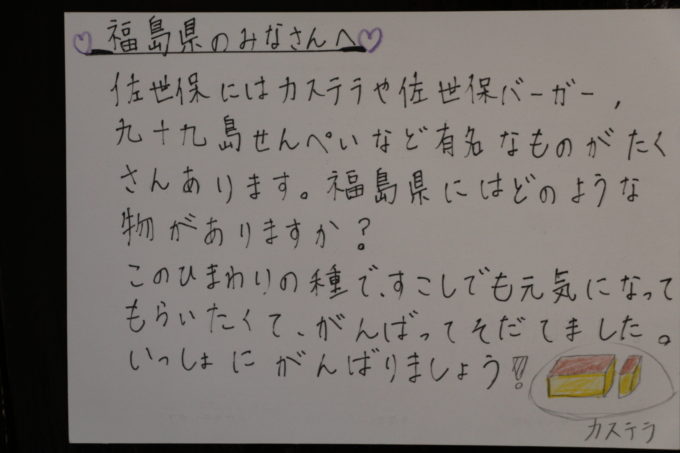 福島県のみなさんへ
佐世保にはカステラや佐世保バーガー,
九十九島せんぺいなど有名なものがたく
さんあります。福島県にはどのような
物がありますか?
このひまわりの種で、すこしでも元気になって
もらいたくて、がんばってそだてました。
いっしょにがんばりましょう!!
カステラ